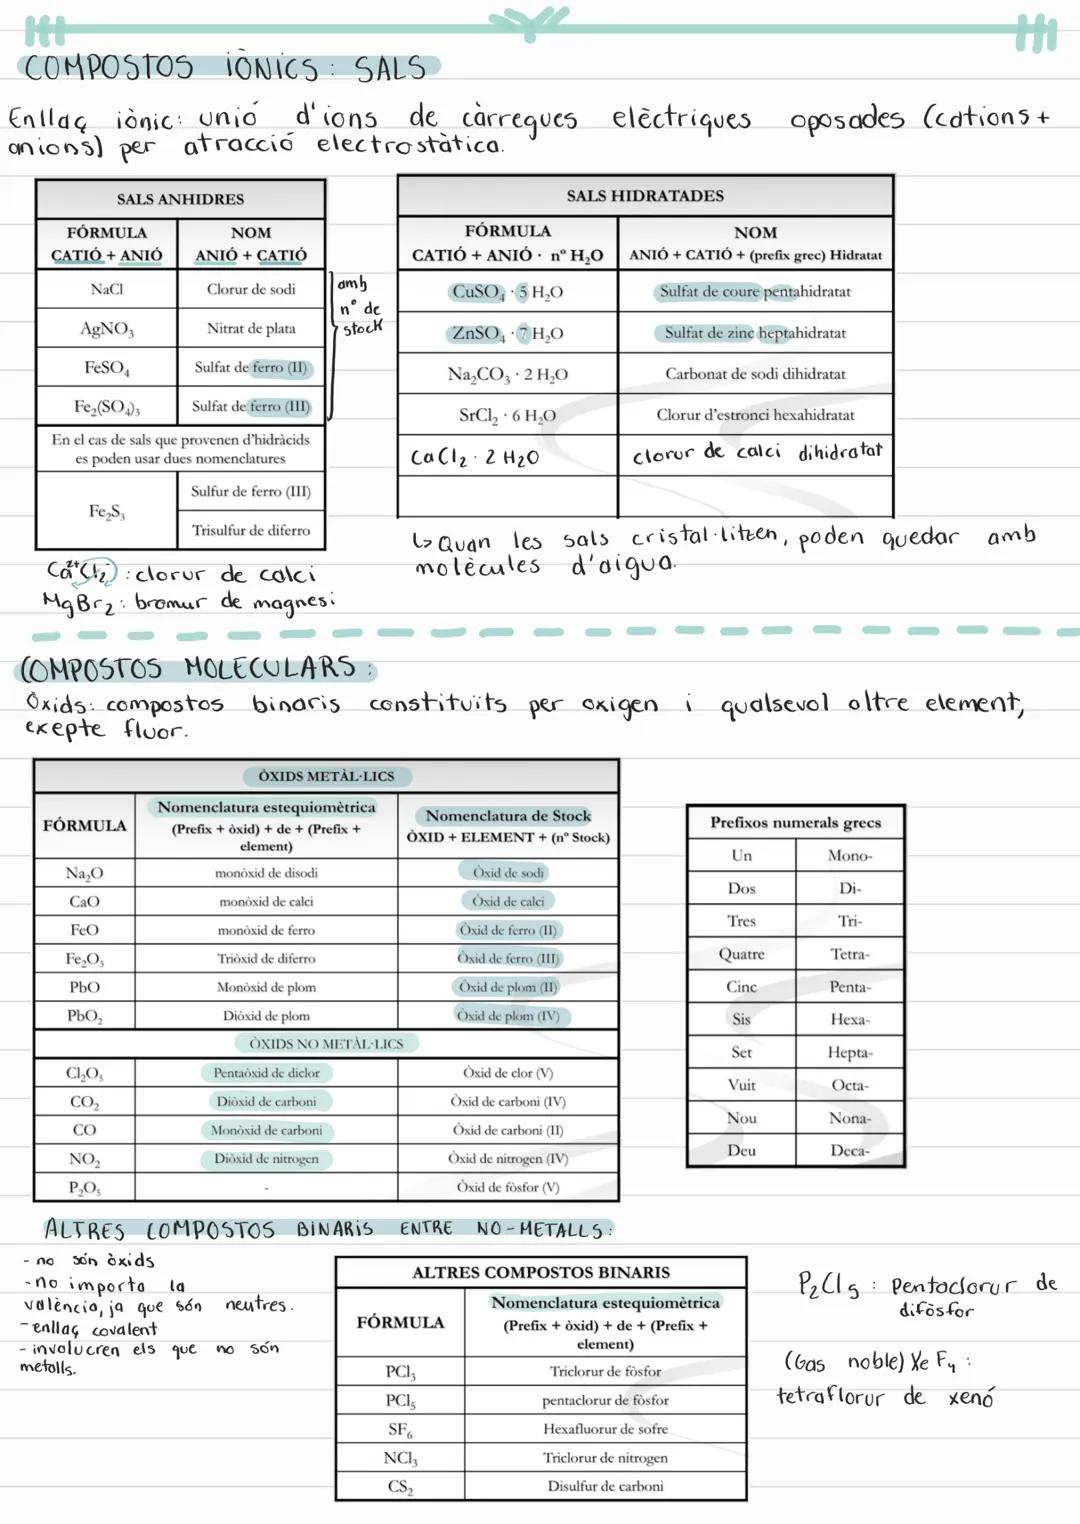 COMPOSTOS IÒNICS: SALS
Enllaç iònic: unió d'ions de càrregues elèctriques oposades (cations +
anions) per atracció electrostàtica.
SALS ANHIDRES
FÓRMULA
CATIÓ + ANIÓ
NOM
ANIÓ + CATIÓ
NaCl Clorur de sodi
AgNO₃ Nitrat de plata
FeSO₄ Sulfat de ferro (II)
Fe₂(SO₄)₃ Sulfat de ferro (III)
En el cas de sals que provenen d'hidràcids
es poden usar dues nomenclatures
Fe₂S₃
Sulfur de ferro (III)
Trisulfur de diferro
amb
nº de
stock
Ca²⁺Cl₂⁻: clorur de calci
MgBr₂: bromur de magnesi
SALS HIDRATADES
FÓRMULA
CATIÓ + ANIÓ · nº H₂O
NOM
ANIÓ + CATIÓ + (prefix grec) Hidratat
CuSO₄ · 5 H₂O Sulfat de coure pentahidratat
ZnSO₄ · 7 H₂O Sulfat de zinc heptahidratat
Na₂CO₃ · 2 H₂O Carbonat de sodi dihidratat
SrCl₂ · 6 H₂O Clorur d'estronci hexahidratat
CaCl₂ · 2 H₂O clorur de calci dihidratat
↳ Quan les sals cristal·litzen, poden quedar amb
molècules d'aigua.
COMPOSTOS MOLECULARS:
Òxids: compostos binaris constituïts per oxigen i qualsevol altre element,
exepte fluor.
ÒXIDS METÀL·LICS
FÓRMULA
Nomenclatura estequiomètrica
(Prefix + òxid) + de + (Prefix +
element)
Nomenclatura de Stock
ÒXID + ELEMENT + (nº Stock)
Na₂O monòxid de disodi Òxid de sodi
CaO monòxid de calci Òxid de calci
FeO monòxid de ferro Òxid de ferro (II)
Fe₂O₃ Triòxid de diferro Òxid de ferro (III)
PbO Monòxid de plom Òxid de plom (II)
PbO₂ Diòxid de plom Òxid de plom (IV)
ÒXIDS NO METÀL·LICS
Cl₂O₅ Pentaòxid de diclor Òxid de clor (V)
CO₂ Diòxid de carboni Òxid de carboni (IV)
CO Monòxid de carboni Òxid de carboni (II)
NO₂ Diòxid de nitrogen Òxid de nitrogen (IV)
P₂O₅ - Òxid de fòsfor (V)
Prefixos numerals grecs
Un Mono-
Dos Di-
Tres Tri-
Quatre Tetra-
Cinc Penta-
Sis Hexa-
Set Hepta-
Vuit Octa-
Nou Nona-
Deu Deca-
ALTRES COMPOSTOS BINARIS ENTRE NO-METALLS:
- no són òxids
- no importa la
valència, ja que són neutres.
- enllaç covalent
- involucren els que no són
metalls.
ALTRES COMPOSTOS BINARIS
FÓRMULA
Nomenclatura estequiomètrica
(Prefix + òxid) + de + (Prefix +
element)
PCl₃ Triclorur de fòsfor
PCl₅ pentaclorur de fòsfor
SF₆ Hexafluorur de sofre
NCl₃ Triclorur de nitrogen
CS₂ Disulfur de carboni
P₂Cl₅: Pentaclorur de
difòsfor
(Gas noble) XeF₄:
tetraflorur de xenó